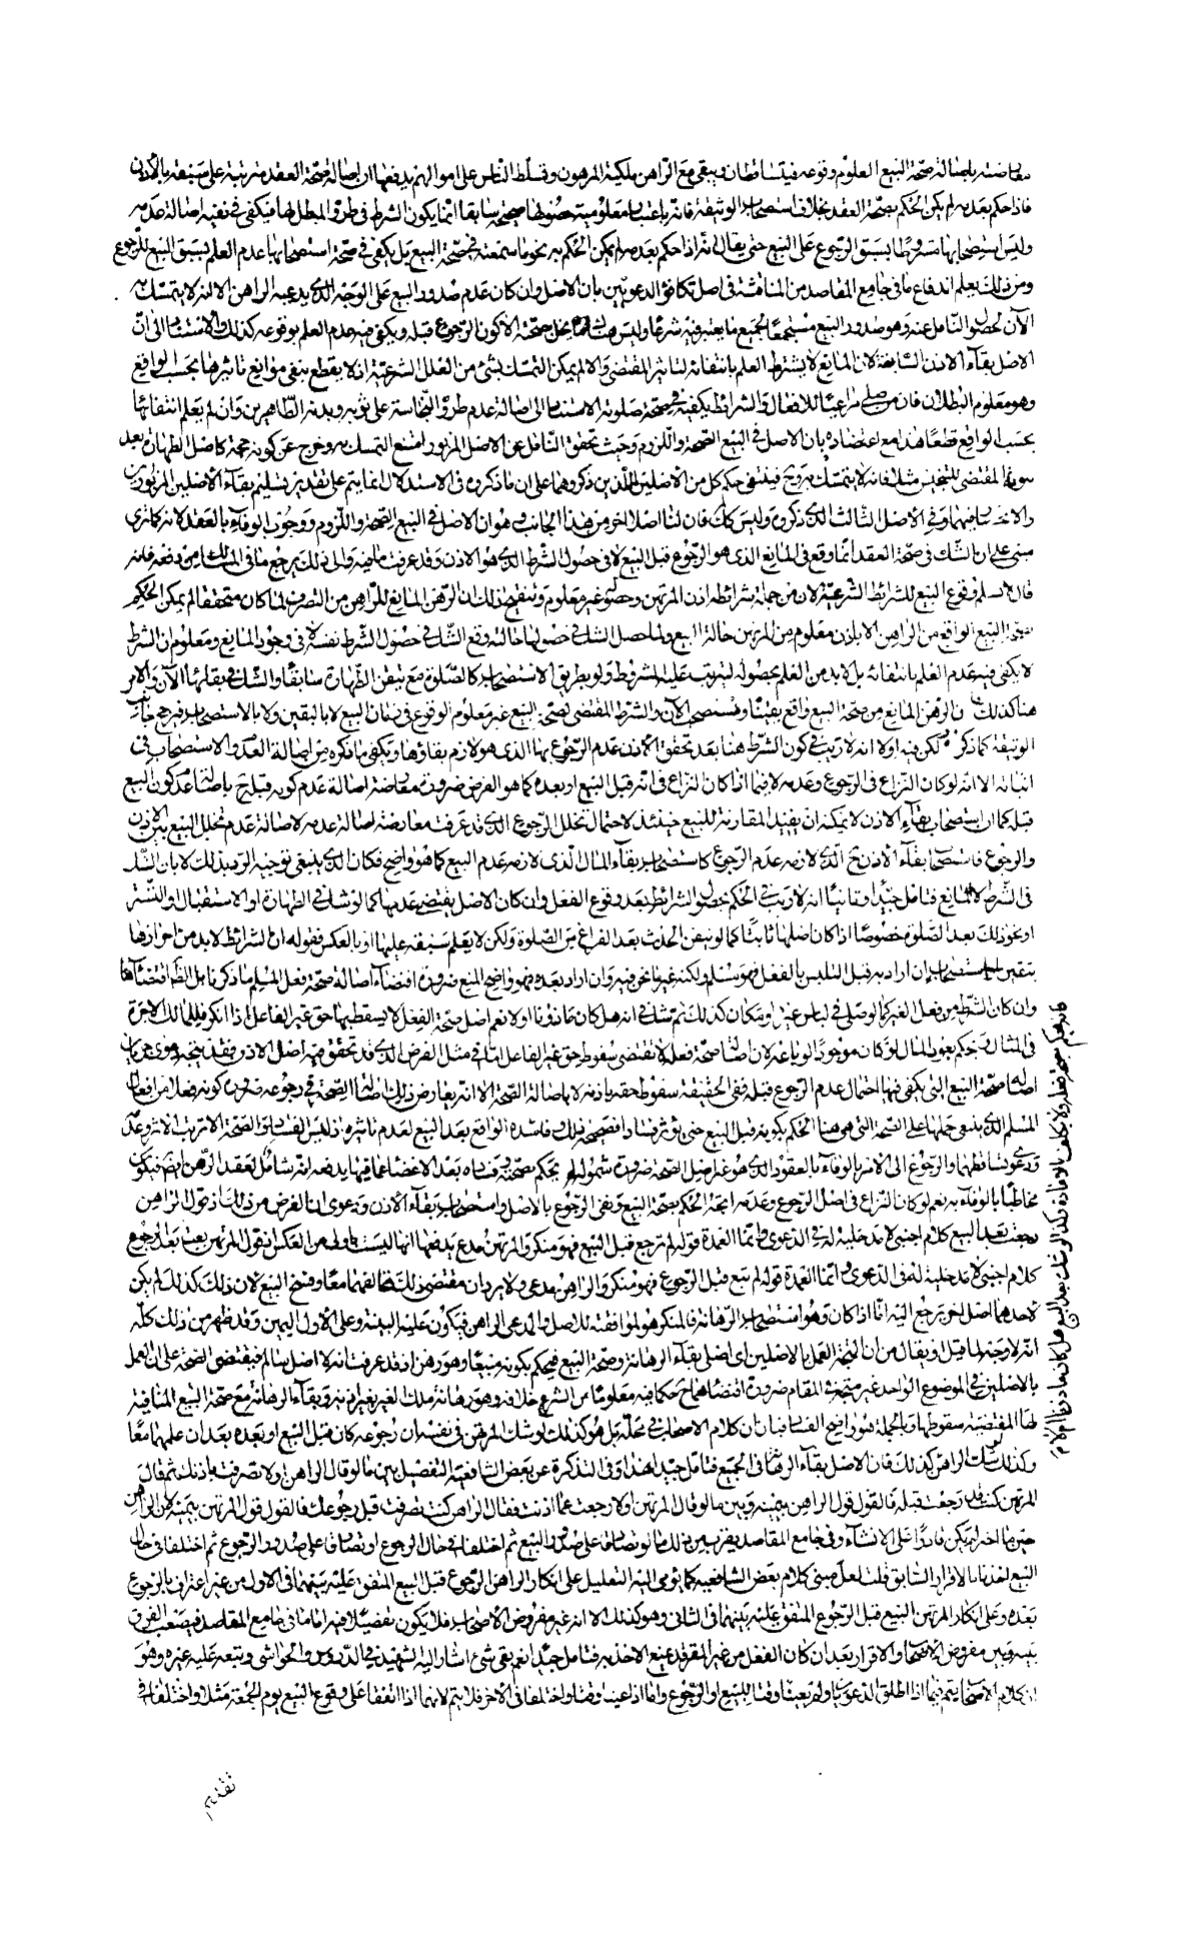 معارضته باصالة صحة البيع المعلوم وقوعه فيتساقطان ويبقى مع الراهن ملكية المرهون وتسلط الناس على اموالهم يدفعها ان اصالة صحة العقد مترتبة على سبقه بالاذن
فاذا حكم بعدمه لم يكن الحكم بصحة العقد بخلاف استصحاب الوثيقة فانه باعتبار معلومية حصولها صحيحة سابقا انما يكون الشرط في طرو المبطل لها فيكفي في نفيه اصالة عدمه
وليس استصحابها مشروطا بسبق الرجوع على البيع حتى يقال انه اذا حكم بعدمه لم يمكن الحكم به نحو ما سمعته في صحة البيع بل يكفي في صحة استصحابها عدم العلم بسبق البيع للرجوع
ومن ذلك يعلم اندفاع ما في جامع المقاصد من المناقشة في اصل تكافؤ الدعويين بان الاصل وان كان عدم صدور البيع على الوجه الذي يدعيه الراهن الا انه لا يتمسك به
الآن لحصول الناقل عنه وهو صدور البيع مستجمعا لجميع ما يعتبر فيه شرعا وليس هناك ما يخل بصحته الا كون الرجوع قبله ويكفي فيه عدم العلم بوقوعه كذلك والاستناد الى ان
الاصل بقاء الاذن السابقة لان المانع لا يشترط العلم بانتفائه لتاثير المقتضي والا لم يمكن التمسك بشئ من العلل الشرعية اذ لا يقطع بنفي موانع تاثيرها بحسب الواقع
وهو معلوم البطلان فان من صلى مراعيا للافعال والشرائط يكفيه في صحة صلوته الاستناد الى اصالة عدم طرو النجاسة على ثوبه وبدنه الطاهرين وان لم يعلم انتفائها
بحسب الواقع قطعا هذا مع اعتضاده بان الاصل في البيع الصحة واللزوم وحيث تحقق الناقل عن الاصل المزبور امتنع التمسك به وخرج عن كونه حجة كاصل الطهارة بعد
المقتضي للتنجيس مثلا فانه لا يتمسك به وح فينتفي حكم كل من الاصلين الذين ذكروهما على ان ما ذكروه في الاستدلال انما يتم على تقدير تسليم بقاء الاصلين المزبورين
في الاصل الثالث الذي ذكروه وليس كك فان لنا اصلا اخر من هذا الجانب وهو ان الاصل في البيع الصحة واللزوم ووجوب الوفاء بالعقد لانه كما ترى
مبني على ان الشك في صحة العقد انما وقع في المانع الذي هو الرجوع قبل البيع لا في حصول الشرط الذي هو الاذن وقد عرفت ما فيه والى ذلك يرجع ما في المسالك من دفعه فانه
قال لا نسلم وقوع البيع للشرائط الشرعية لان من جملة شرائطه اذن المرتهن وحصوله غير معلوم وتنقيح ذلك ان الرهن المانع للراهن من التصرف لما كان متحققا لم يمكن الحكم
بصحة البيع الواقع من الراهن الا باذن معلوم من المرتهن حالة البيع ولما حصل الشك في حصولها حالته وقع الشك في حصول الشرط نفسه لا في وجود المانع ومعلوم ان الشرط
لا يكفي فيه عدم العلم بانتفائه بل لا بد من العلم بحصوله ليترتب عليه المشروط ولو بطريق الاستصحاب كالصلوة مع تيقن الطهارة سابقا والشك في بقائها الآن والامر
هنا كذلك فان الرهن المانع من صحة البيع واقع يقينا ومستصحب الآن والشرط المقتضي لصحة البيع غير معلوم الوقوع في زمان البيع لا باليقين ولا بالاستصحاب فيرجح جانب
الوثيقة كما ذكر لكن فيه اولا انه لا ريب في كون الشرط هنا بعد تحقق الاذن عدم الرجوع بها الذي هو لازم بقاؤها ويكفي ما ذكره من اصالة العدم والاستصحاب في
اثباته الا انه لو كان النزاع في الرجوع وعدمه لا فيما اذا كان النزاع في انه قبل البيع او بعده كما هو الفرض ضرورة معارضة اصالة عدم كونه قبله ح باصالة عدم كون البيع
قبله كما ان استصحاب بقاء الاذن لا يمكنه ان يفيد المقارنة للبيع حينئذ لاحتمال تخلل الرجوع الذي قد عرفت معارضة اصالة عدمه لاصالة عدم تخلل البيع بين الاذن
والرجوع فاستصحاب بقاء الاذن ح الذي لازمه عدم الرجوع كاستصحاب بقاء المال الذي لازمه عدم البيع كما هو واضح فكان الذي ينبغي توجيه الرد بذلك لا بان الشك
في الشرط لا المانع فتامل جيدا وثانيا انه لا ريب في الحكم بحصول الشرائط بعد وقوع الفعل وان كان الاصل يقتضي عدمها كما لو شك في الطهارة او الاستقبال او التستر
او نحو ذلك بعد الصلوة خصوصا اذا كان اصلها ثابتا كما لو تيقن الحدث بعد الفراغ من الصلوة ولكن لا يعلم سبقه عليها او بالعكس فقوله ان الشرائط لا بد من احرازها
بيقين او استصحاب ان اراد به قبل التلبس بالفعل فهو مسلم ولكنه غير ما نحن فيه وان اراد بعده فهو واضح المنع ضرورة اقتضاء اصالة صحة فعل المسلم ما ذكرنا بل الظ اقتضاءها
وان كان الشرط من فعل الغير كما لو صلى في لباس غيره او مكان كذلك ثم شك في انه هل كان ماذونا اولا نعم اصل صحة الفعل لا يسقط بها حق غير الفاعل اذا انكر فللمالك الاجرة
في المثال ح كم بعود المال لو كان موجودا لو باعه لان اصالة صحة فعله لا تقتضي سقوط حق غير الفاعل اما في مثل الفرض الذي قد تحقق فيه اصل الاذن فقد يتجه دعوى جريان
اصالة صحة البيع التي يكفي فيها احتمال عدم الرجوع قبله ففي الحقيقة سقوط حقه باذنه لا باصالة الصحة الا انه يعارض ذلك اصالة الصحة في رجوعه ضرورة كونه فعلا من افعال
المسلم الذي ينبغي حملها على الصحة التي هي هنا الحكم بكونه قبل البيع حتى يؤثر فسادا
ودعوى تساقطهما والرجوع الى الامر بالوفاء بالعقود الذي هو غير اصل الصحة ضرورة شموله لما لم يحكم بصحته وفساده بعد الاغضاء عما فيها يدفعها انه شامل لعقد الرهن ايضا فيكون
مخاطبا بالوفاء به نعم لو كان النزاع في اصل الرجوع وعدمه اتجه الحكم بصحة البيع ونفي الرجوع بالاصل واستصحاب بقاء الاذن ودعوى ان الفرض من ذلك اذ قول الراهن
رجعت بعد البيع كلام اجنبي لا مدخلية له في الدعوى وانما العمدة قوله لم ترجع قبل البيع فهو منكر والمرتهن مدع يدفعها انها ليست باولى من العكس اذ قول المرتهن بعت بعد الرجوع
كلام اجنبي لا مدخلية له في الدعوى وانما العمدة قوله لم تبع قبل الرجوع فهو منكر والراهن مدعي ولا يرد ان مقتضى ذلك تحالفهما معا وفسخ البيع لان ذلك كذلك لو لم يكن
لاحدهما اصل اخر يرجع اليه اما اذا كان وهو استصحاب الرهانة فالمنكر هو الموافق للاصل والمدعي الراهن فيكون عليه البينة وعلى الاول اليمين وقد ظهر من ذلك كله
انه لا وجه لما قيل او يقال من ان المتجه العمل بالاصلين اي اصلي بقاء الرهانة وصحة البيع فيحكم بكونه مبيعا وهو رهن اذ قد عرفت انه لا اصل سالم فيقتضي الصحة على ان العمل
بالاصلين في الموضوع الواحد غير متجه في المقام ضرورة اقتضائهما ح حكما فيه معلوما من الشرع خلافه وهو رهانة ملك الغير بغير اذنه وبقاء الرهانة مع صحة البيع المنافية
لها المقتضية سقوطها وبالجملة هو واضح الفساد فبان ان كلام الاصحاب في محله بل هو كذلك لو شك المرتهن في نفسه ان رجوعه كان قبل البيع او بعده بعد ان علمهما معا
وكذا لو شك الراهن كذلك فان الاصل بقاء الرهانة في الجميع فتامل جيدا هذا وفي التذكرة عن بعض الشافعية التفصيل بين ما لو قال الراهن اولا تصرفت باذنك ثم قال
المرتهن كنت قد رجعت قبله فالقول قول الراهن بيمينه وبين ما لو قال المرتهن اولا رجعت عما اذنت فقال الراهن كنت تصرفت قبل رجوعك فالقول قول المرتهن بيمينه لان الراهن
حينما اخبر لم يكن قادرا على الانشاء وفي جامع المقاصد يقرب من ذلك ما لو تصادقا على صدور البيع ثم اختلفا في حال الرجوع او تصادقا على صدور الرجوع ثم اختلفا في حال
البيع لنفوذ الاقرار السابق قلت لعل مبنى كلام بعض الشافعية كما يومي اليه التعليل على انكار الراهن الرجوع قبل البيع المتفق عليه بينهما في الاول من غير اعتراف بالرجوع
بعده وعلى انكار المرتهن البيع قبل الرجوع المتفق عليه بينهما في الثاني وهو كذلك الا انه غير مفروض الاصحاب فلا يكون تفصيلا فيه اما ما في جامع المقاصد فيصعب الفرق
بينه وبين مفروض الاصحاب والاقرار بعد ان كان الفعل من غير المقر قد يمنع الاخذ به فتامل جيدا نعم بقي شئ اشار اليه الشهيد في الدروس والحواشي وتبعه عليه غيره وهو
ان كلام الاصحاب يتم فيما اذا اطلق الدعويان ولم يعينا وقتا للبيع او الرجوع واما اذا عينا وقتا واختلفا في الاخر فلا يتم لانهما اذا اتفقا على وقوع البيع يوم الجمعة مثلا واختلفا في
تقديم